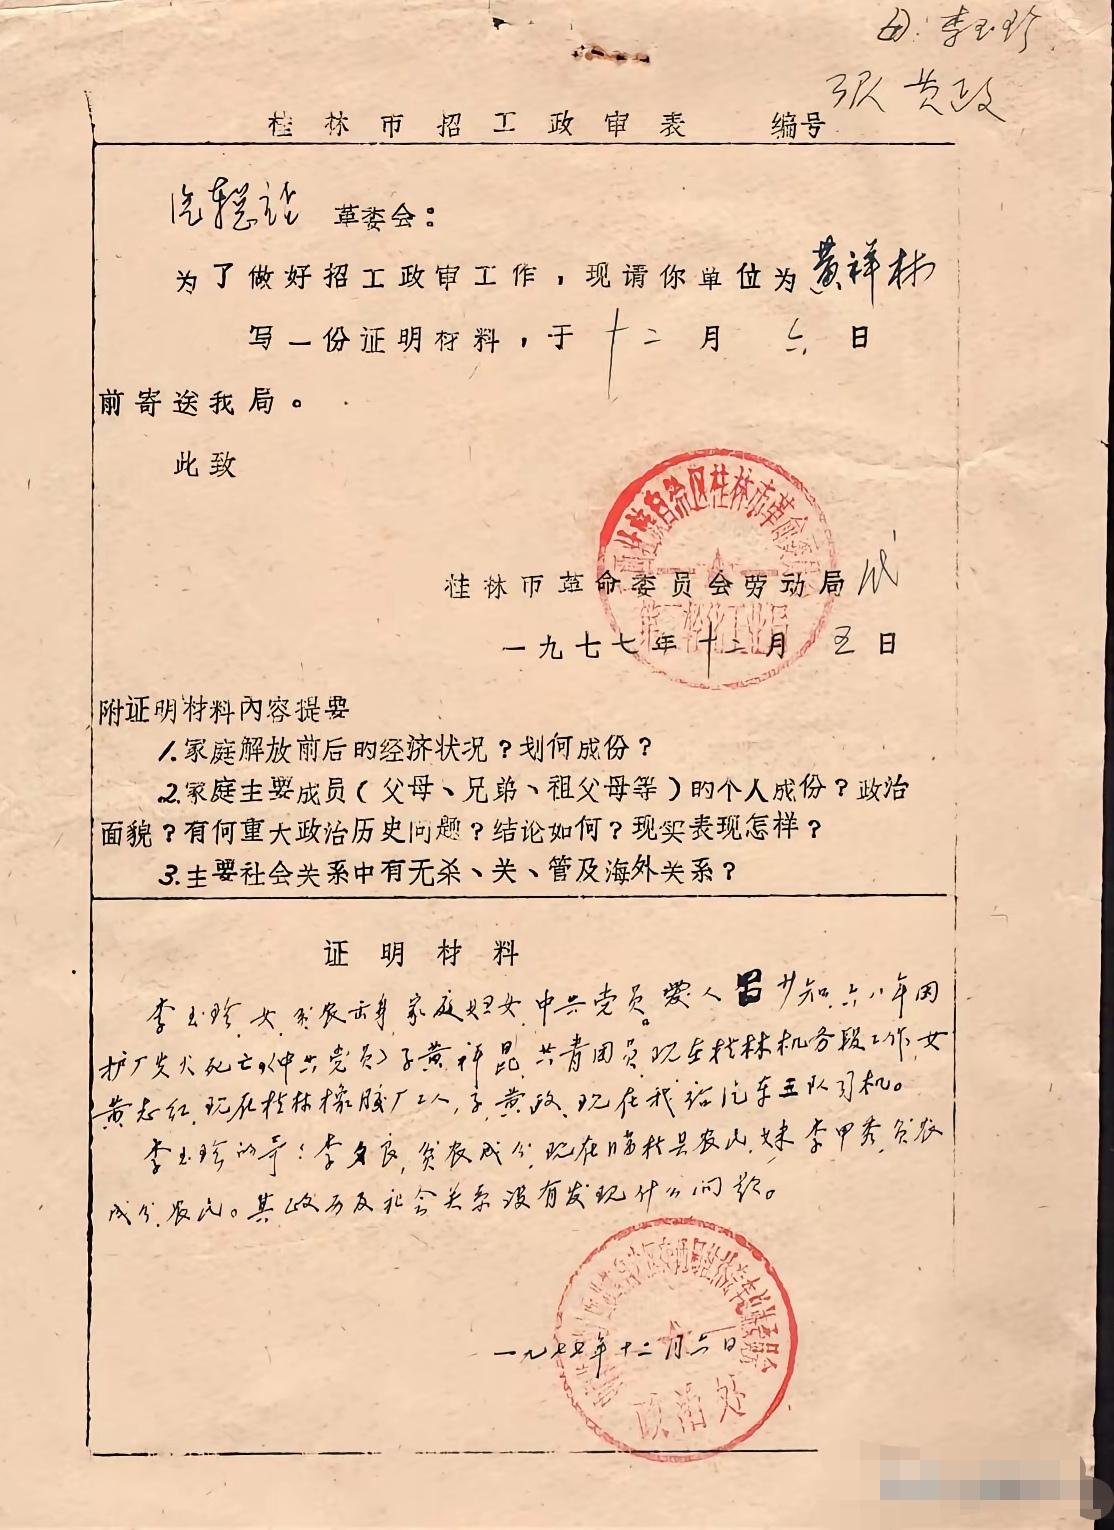 母:李玉珍
3队 黄政
桂林市招工政审表 编号
汽车总站 革委会：
为了做好招工政审工作，现请你单位为黄祥林
写一份证明材料，于十二月六日
前寄送我局。
此致
桂林市革命委员会劳动局 代
一九七七年十二月五日
附证明材料内容提要
1.家庭解放前后的经济状况？划何成份？
2.家庭主要成员（父母、兄弟、祖父母等）的个人成份？政治
面貌？有何重大政治历史问题？结论如何？现实表现怎样？
3.主要社会关系中有无杀、关、管及海外关系？
证明材料
李玉珍，女，贫农出身，家庭妇女，中共党员。爱人 少知，六八年因
护厂失火死亡，（中共党员）子黄祥昆，共青团员，现在桂林机务段工作，女
黄志红，现在桂林橡胶厂工人，子，黄政，现在我站汽车三队司机。
李玉珍的哥：李 良，贫农成分，现在临桂县农民，妹李甲秀，贫农
成分，农民。其政历及社会关系没有发现什么问题。
一九七七年十二月六日
政治处